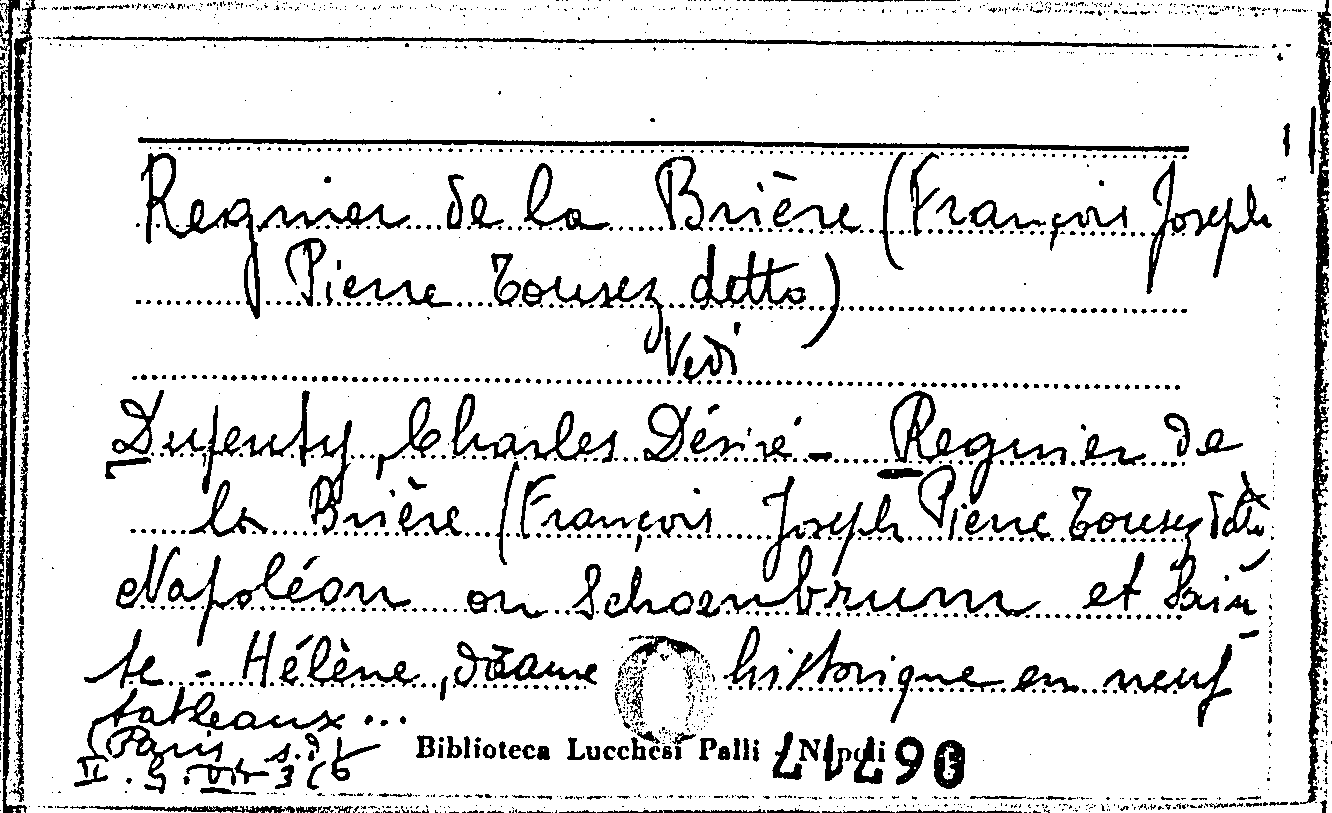 Regnier de la Brière (François Joseph
Pierre Tousez detto)
Vedi
Dupeuty, Charles Désiré - Regnier de
la Brière (François Joseph Pierre Tousez detto
Napoléon ou Schoenbrunn et Sain-
te-Hélène, drame historique en neuf
tableaux...
(Paris, s.d.)
Biblioteca Lucchesi Palli - Napoli